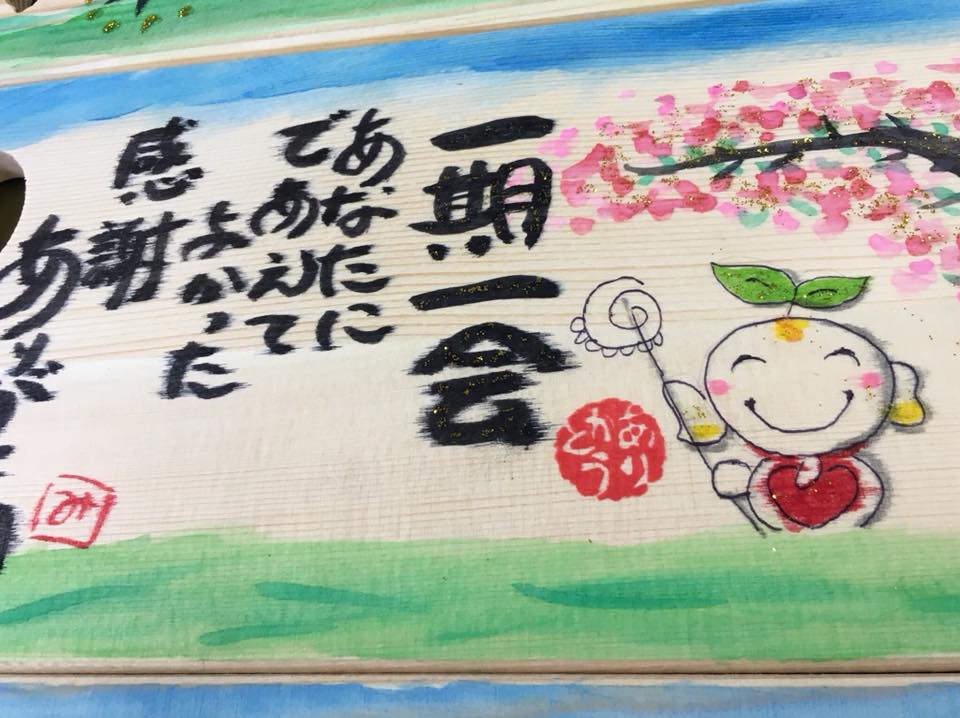 一期一会
あなたに
であえて
よかった
感謝
あ
ありがとう
み